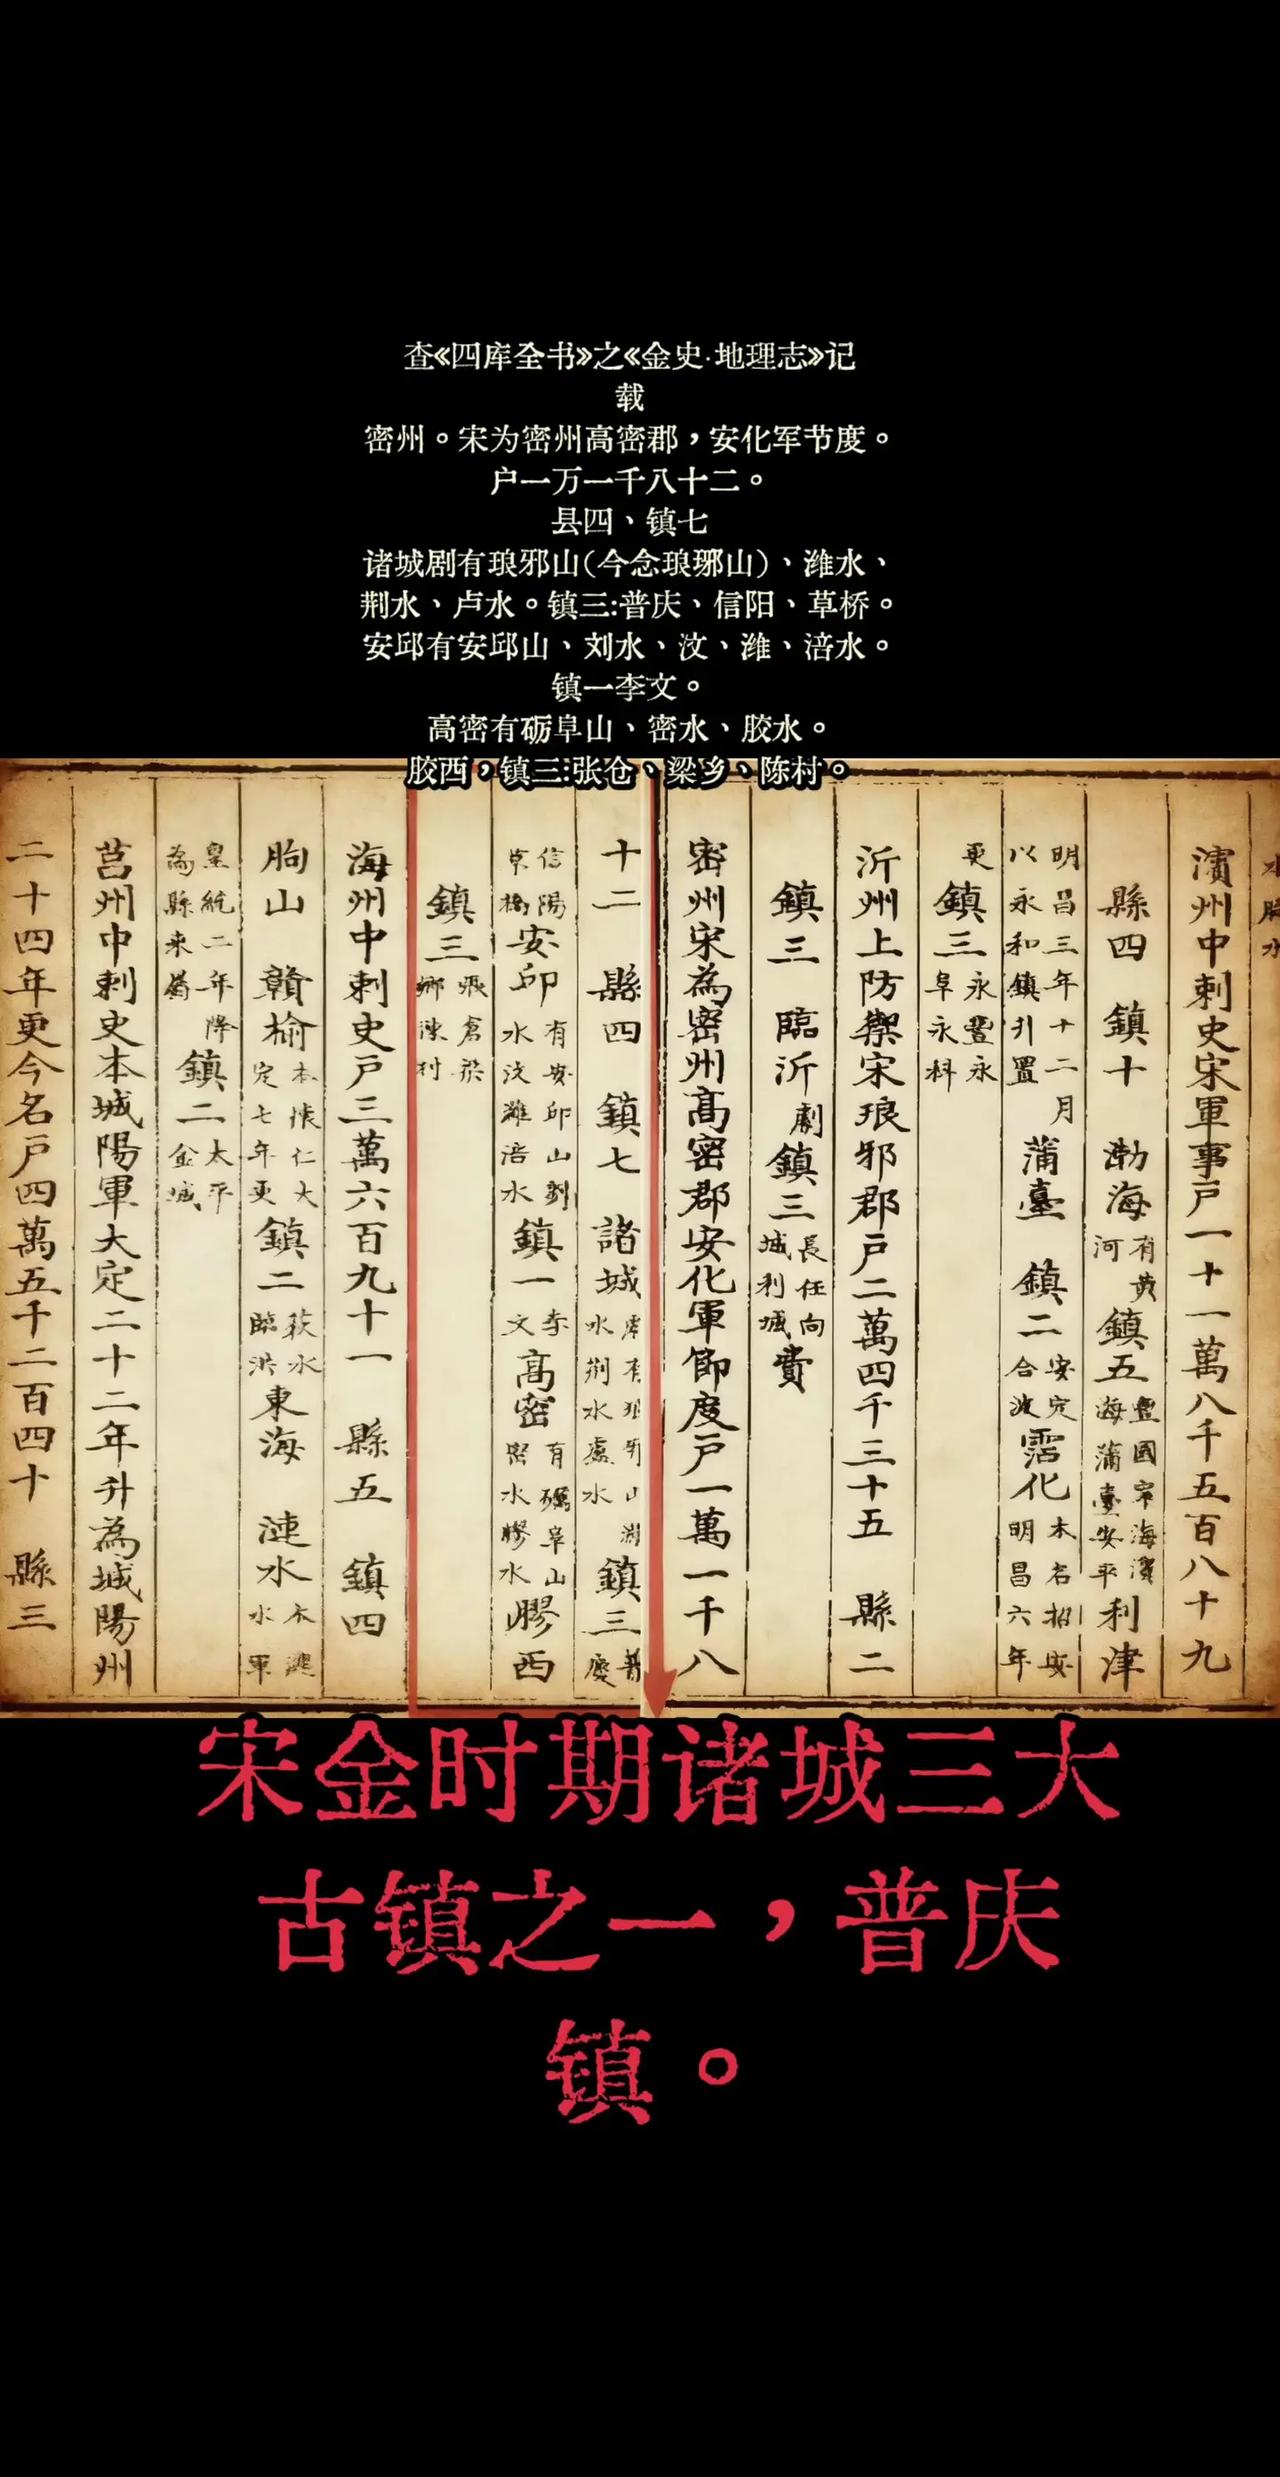 查《四库全书》之《金史·地理志》记
载
密州。宋为密州高密郡，安化军节度。
户一万一千八十二。
县四、镇七
诸城剧有琅邪山(今念琅琊山)、潍水、
荆水、卢水。镇三:普庆、信阳、草桥。
安邱有安邱山、刘水、汶、潍、涪水。
镇一李文。
高密有砺阜山、密水、胶水。
胶西，镇三:张仓、梁乡、陈村。
水勝水
濱州中刺史宋軍事戶一十一萬八千五百八十九
縣四 鎮十 渤海有黃河鎮五豐國寧海濱海蒲臺安平利津
明昌三年十二月以永和鎮升置蒲臺 鎮二安定合波霑化本名招安明昌六年
更鎮三永豐永阜永科
沂州上防禦宋琅邪郡戶二萬四千三十五 縣二
鎮三 臨沂劇鎮三長任向城利城費
密州宋為密州高密郡安化軍節度戶一萬一千八
十二 縣四 鎮七 諸城劇有琅邪山濰水荆水盧水鎮三普慶
信陽草橋安邱有安邱山劉水汶濰涪水鎮一李文高密有礪阜山密水膠水膠西
鎮三張倉梁鄉陳村
海州中刺史戶三萬六百九十一 縣五 鎮四
朐山 贛榆本懷仁大定七年更鎮二荻水臨洪東海 漣水本漣水軍
皇統二年降為縣來屬鎮二太平金城
莒州中刺史本城陽軍大定二十二年升為城陽州
二十四年更今名戶四萬五千二百四十 縣三
宋金时期诸城三大
古镇之一，普庆
镇。